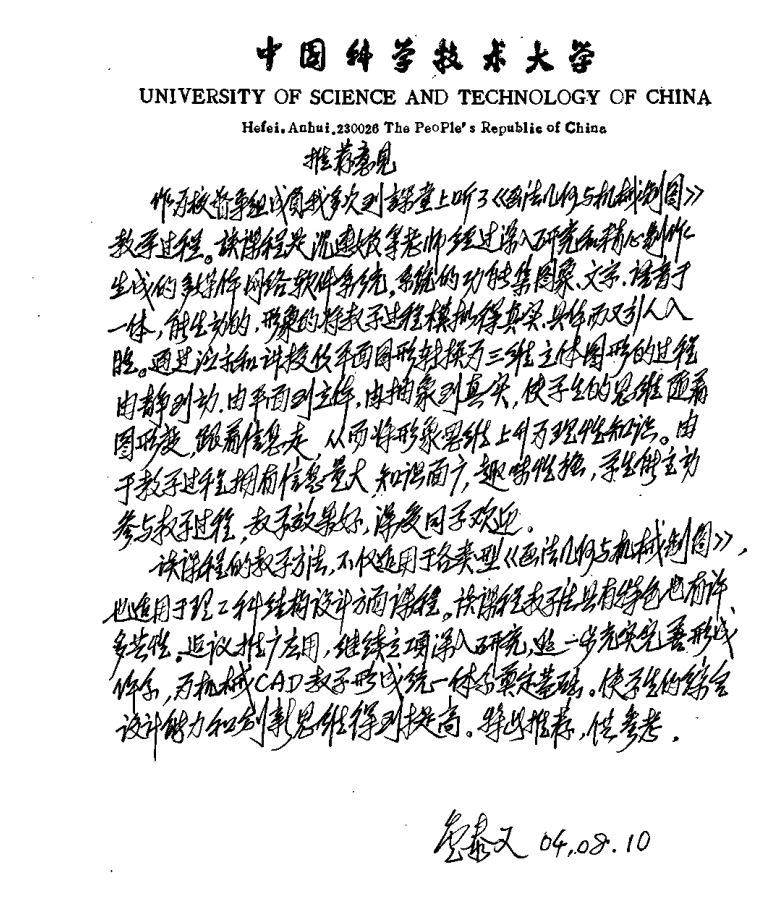 中国科学技术大学
UNIVERSITY OF SCIENCE AND TECHNOLOGY OF CHINA
Hefei, Anhui, 230026 The PeoPle's Republic of China
推荐意见
作为校督导组成员我多次到课堂上听了《画法几何与机械制图》
教学过程。该课程是沈建等老师经过深入研究和精心制作
生成的多媒体网络软件系统,系统的功能集图象、文字、语音于
一体,能生动的、形象的将教学过程模拟得真实、具体而又引人入
胜。通过演示和讲授使平面图形转换为三维立体图形的过程
由静到动、由平面到立体、由抽象到真实,使学生的思维随着
图形变,跟着信息走,从而将形象思维上升为理性知识。由
于教学过程拥有信息量大,知识面广,趣味性强,学生能主动
参与教学过程,教学效果好,深受同学欢迎。
该课程的教学方法,不仅适用于各类型《画法几何与机械制图》,
也适用于理工科结构设计方面课程。该课程教学法具有特色也有许
多共性。建议推广应用,继续立项深入研究,进一步充实完善形成
体系,为机械CAD教学形成统一体系奠定基础。使学生的综合
设计能力和创新思维得到提高。特此推荐,供参考。
泰又 04.08.10